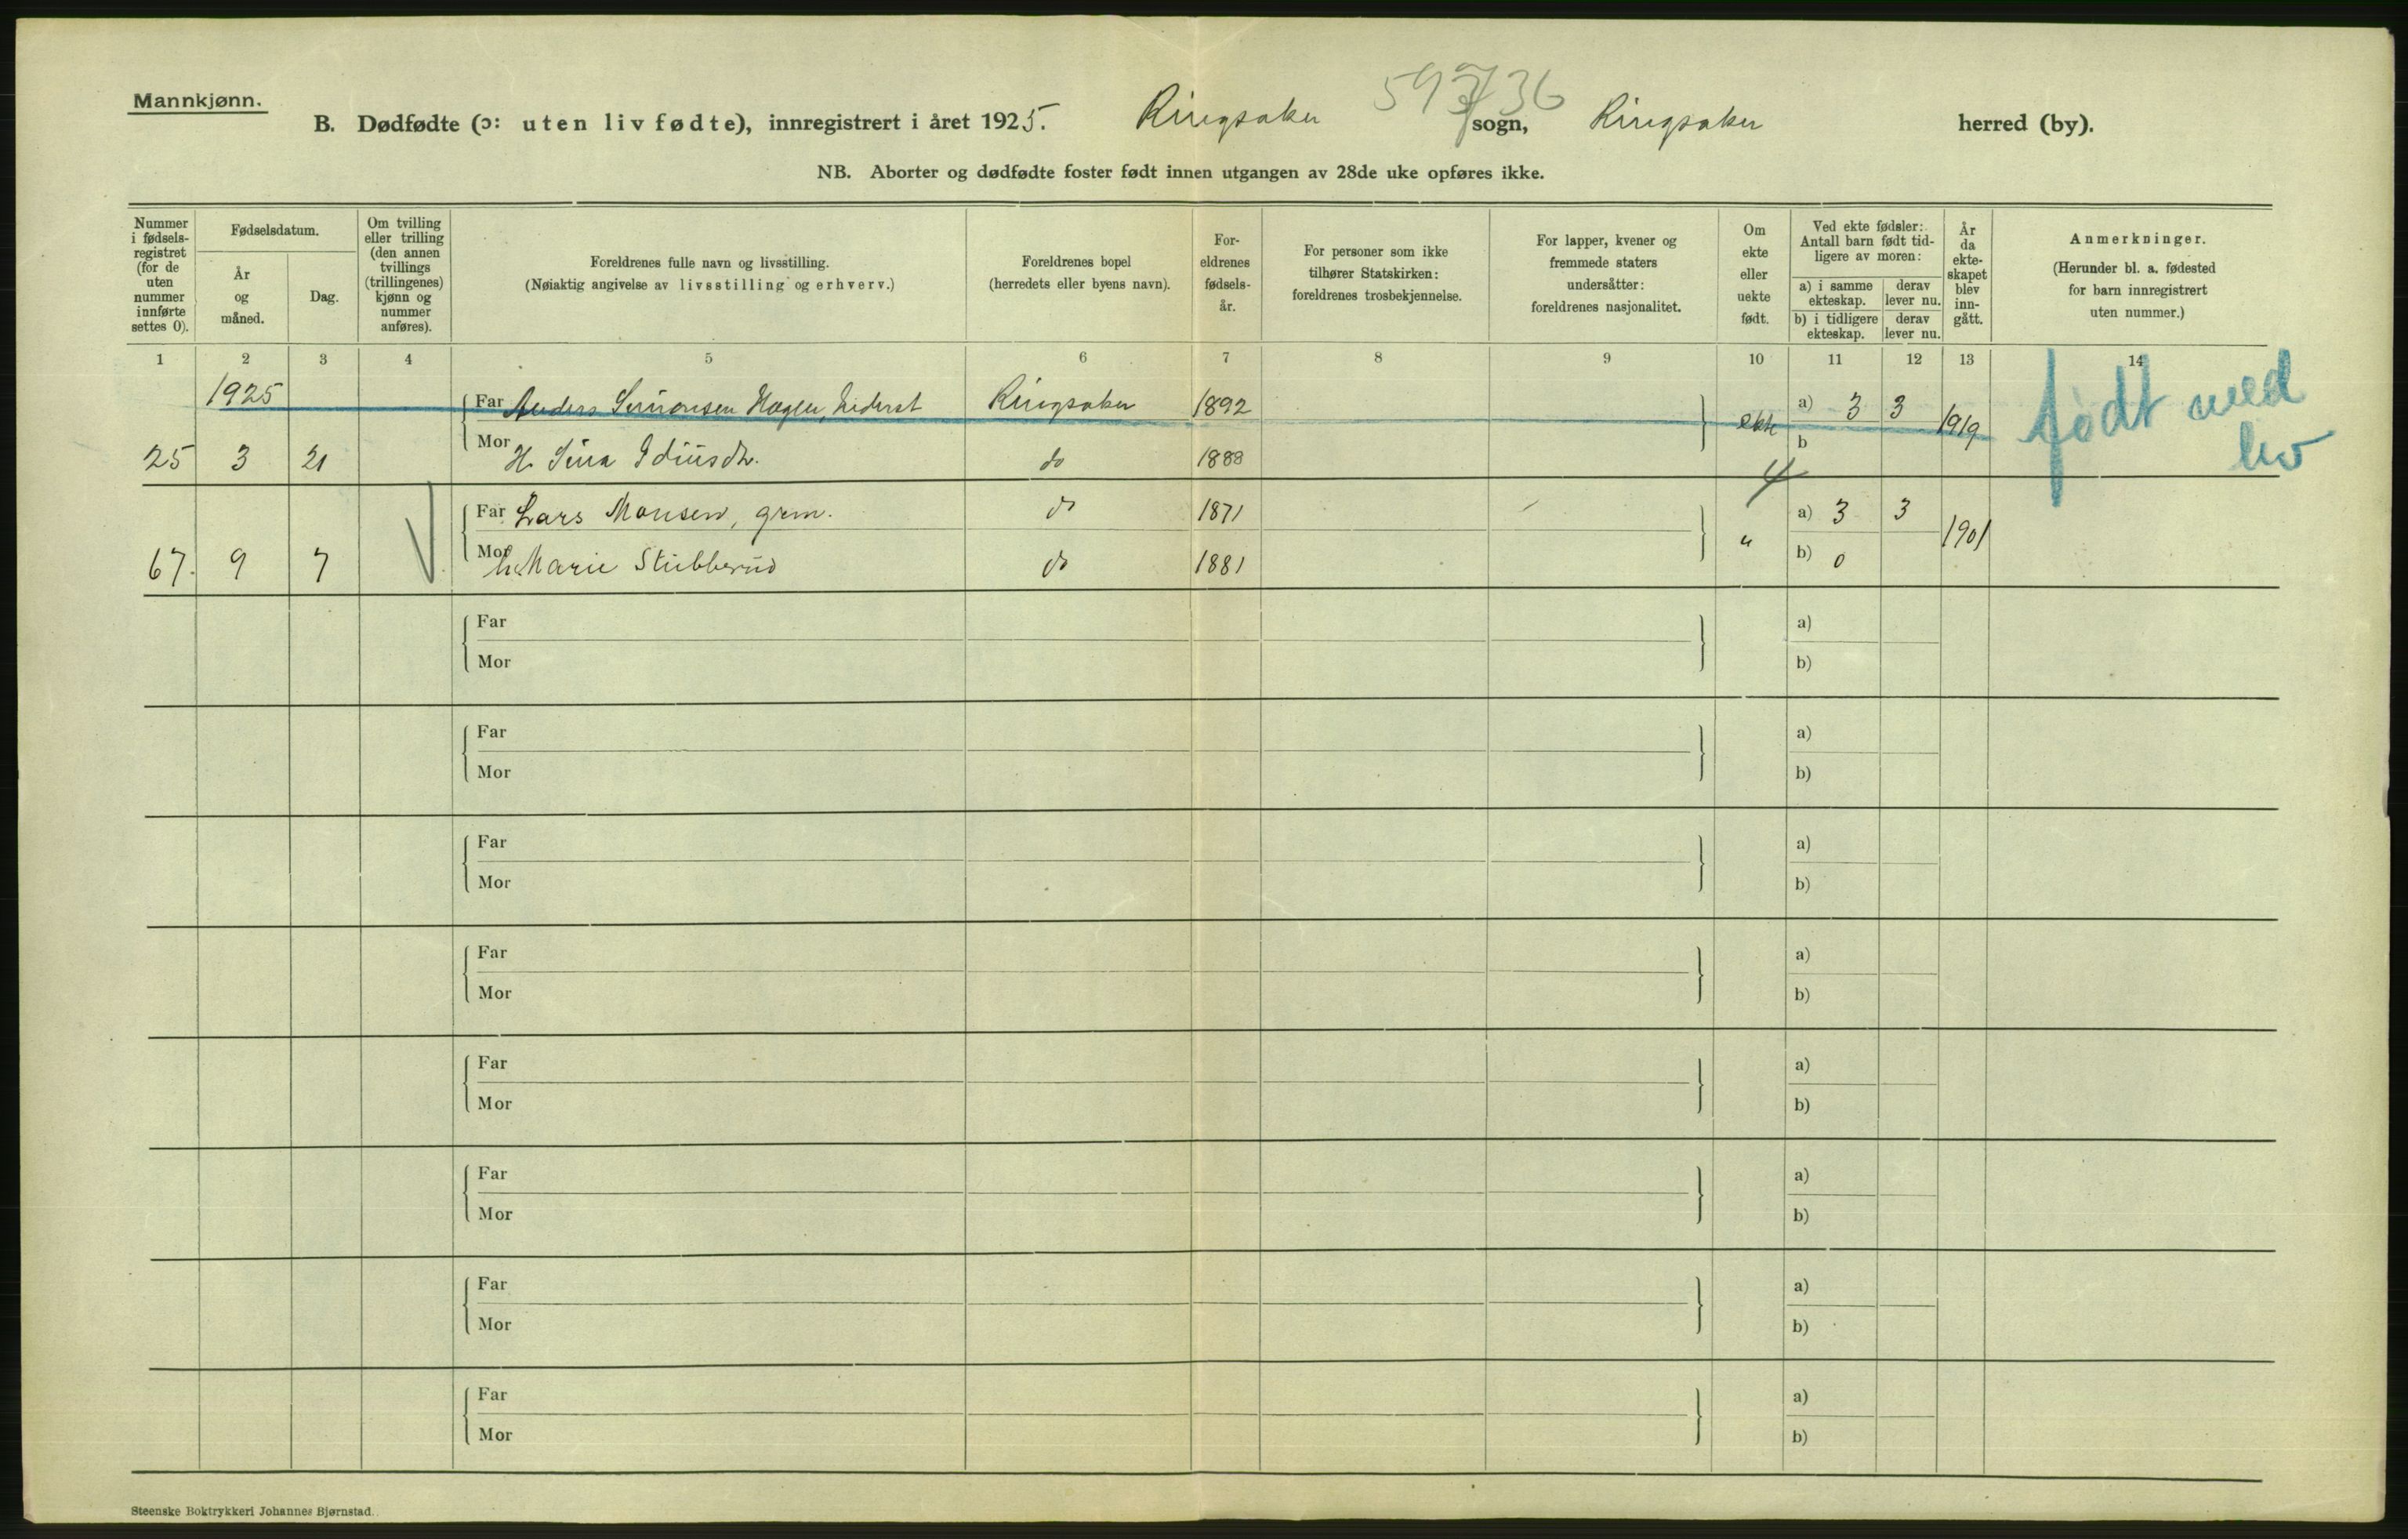 Mannkjønn.
593736
B. Dødfødte (ɔ: uten liv fødte), innregistrert i året 1925. Ringsaker sogn, Ringsaker herred (by).
NB. Aborter og dødfødte foster født innen utgangen av 28de uke opføres ikke.
Nummer i fødsels-registret (for de uten nummer innførte settes 0).
Fødselsdatum.
År og måned.
Dag.
Om tvilling eller trilling (den annen tvillings (trillingenes) kjønn og nummer anføres).
Foreldrenes fulle navn og livsstilling.
(Nøiaktig angivelse av livsstilling og erhverv.)
Foreldrenes bopel
(herredets eller byens navn).
For-eldrenes fødsels-år.
For personer som ikke tilhører Statskirken: foreldrenes trosbekjennelse.
For lapper, kvener og fremmede staters undersåtter: foreldrenes nasjonalitet.
Om ekte eller uekte født.
Ved ekte fødsler: Antall barn født tid-ligere av moren:
a) i samme ekteskap.
derav lever nu.
b) i tidligere ekteskap.
derav lever nu.
År da ekte-skapet blev inn-gått.
Anmerkninger.
(Herunder bl. a. fødested for barn innregistrert uten nummer.)
1 2 3 4 5 6 7 8 9 10 11 12 13 14
1925
Far Anders Simonsen Ringsaker 1892 ekte a) 3 3 1919 født med liv
25 3 21 Mor H. do 1888 b
4
Far Lars Monsen, grm. do 1871 " a) 3 3 1901
67. 9 7 Mor h. Marie Stubberud do 1881 b) 0
Far a)
Mor b)
Far a)
Mor b)
Far a)
Mor b)
Far a)
Mor b)
Far a)
Mor b)
Far a)
Mor b)
Far a)
Mor b)
Far a)
Mor b)
Steenske Boktrykkeri Johannes Bjørnstad.